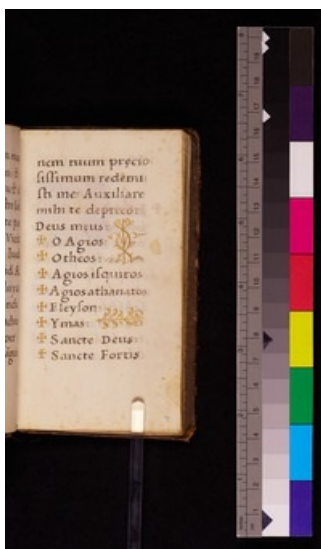 nem tuum precio
sissimum redemi
sti me: Auxiliare
mihi te deprecor
Deus meus:
✠ O Agios:
✠ Otheos:
✠ Agios isquiros
✠ Agios athanatos
✠ Eleyson:
✠ Ymas:
✠ Sancte Deus:
✠ Sancte Fortis